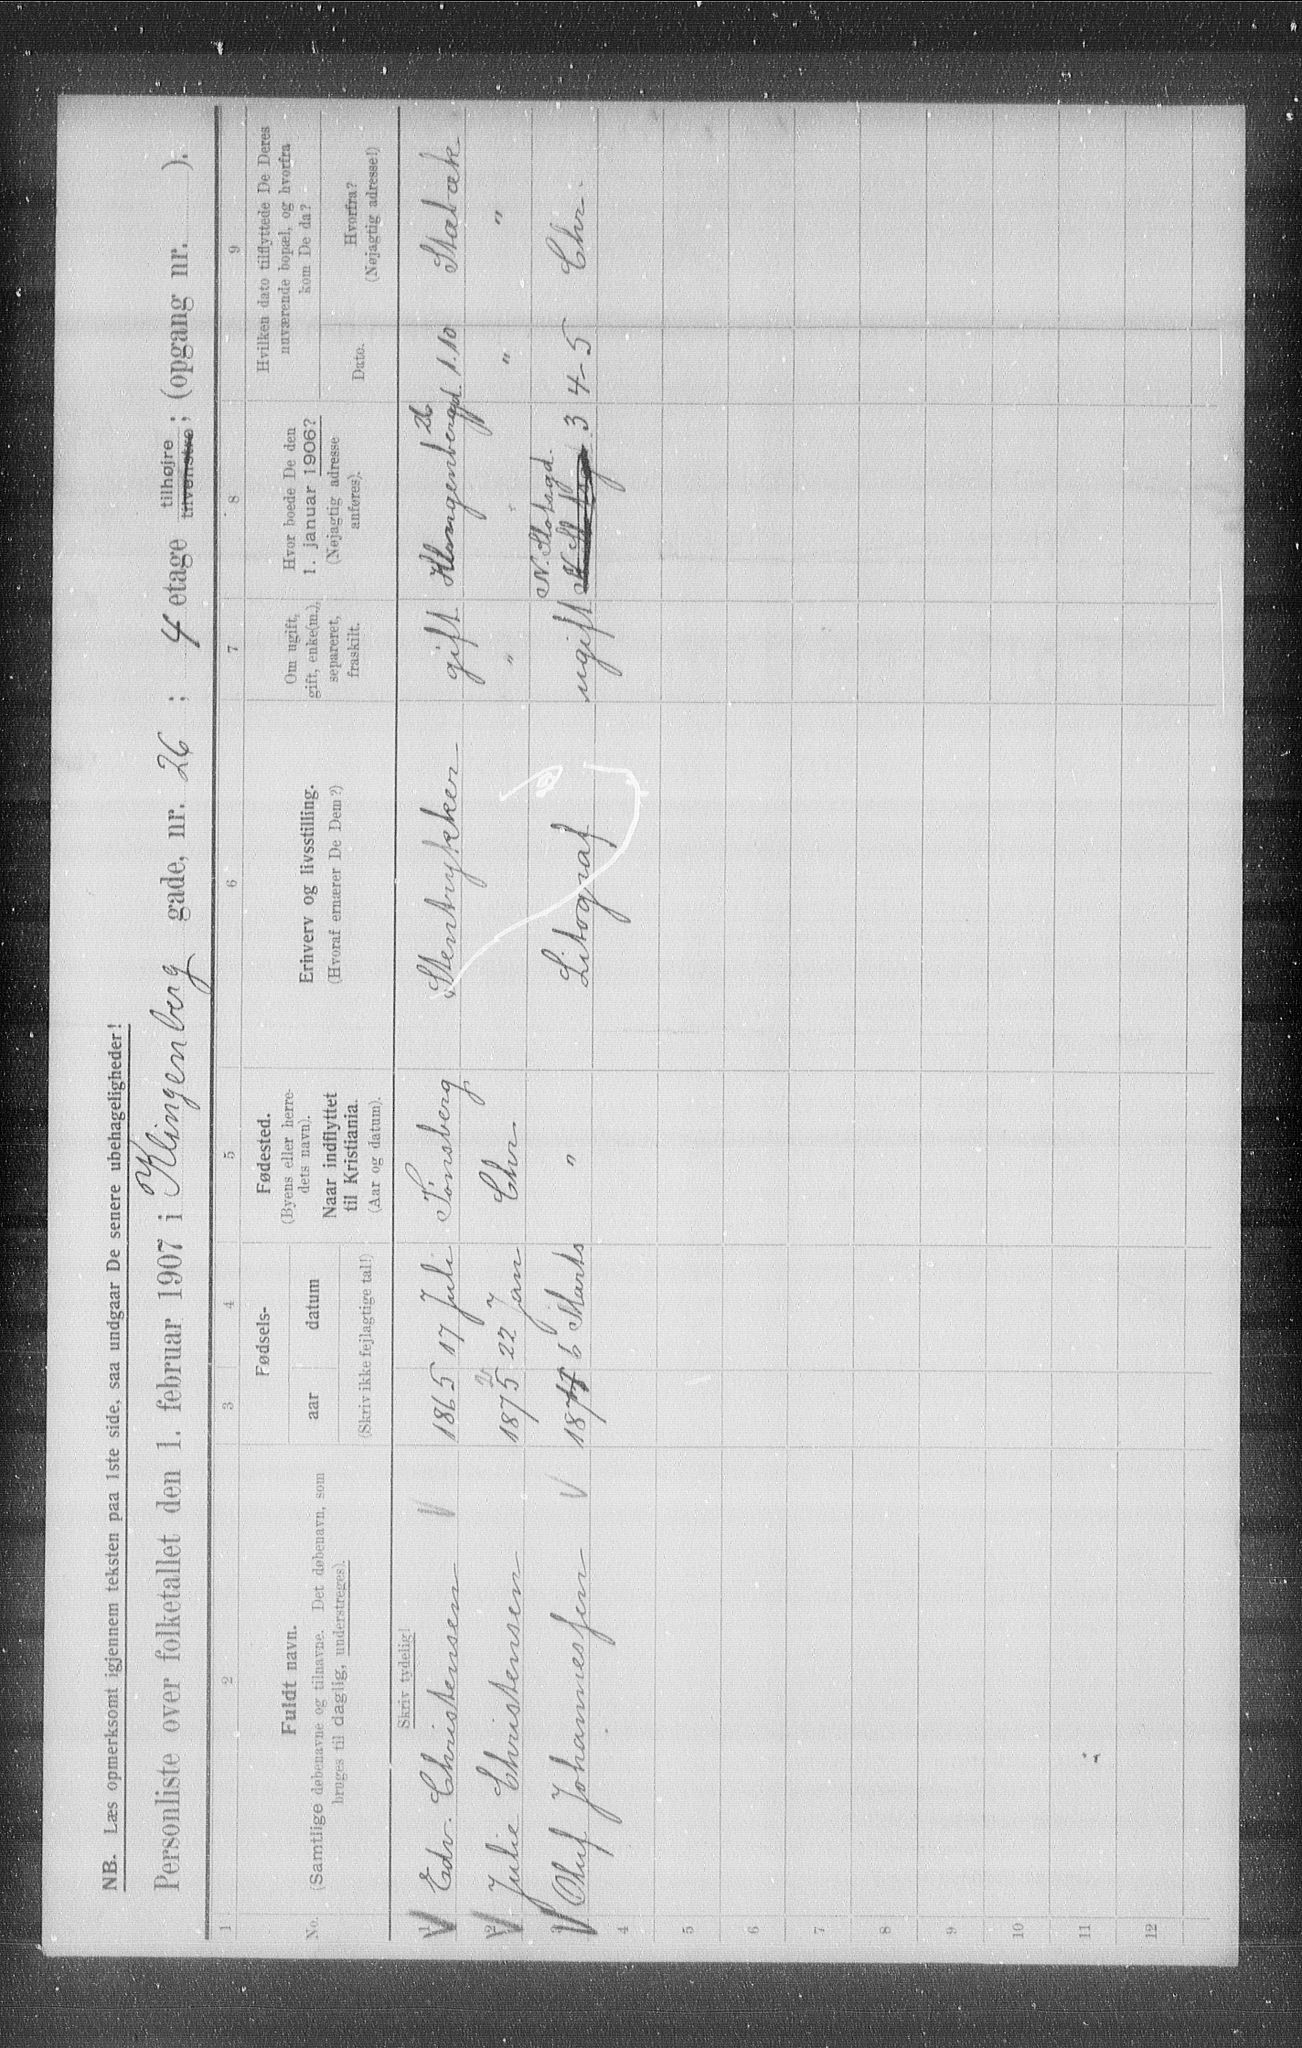 NB. Læs opmerksomt igjennem teksten paa 1ste side, saa undgaar De senere ubehageligheder!
Personliste over folketallet den 1. februar 1907 i Klingenberg gade, nr. 26 ; 4 etage tilhøjre tilvenstre ; (opgang nr. ).
1 2 3 4 5 6 7 8 9
No.
Fuldt navn.
(Samtlige døbenavne og tilnavne. Det døbenavn, som
bruges til daglig, understreges).
Fødsels-
aar datum
(Skriv ikke fejlagtige tal!)
Fødested.
(Byens eller herre-
dets navn).
Naar indflyttet
til Kristiania.
(Aar og datum).
Erhverv og livsstilling.
(Hvoraf ernærer De Dem?)
Om ugift,
gift, enke(m.),
separeret,
fraskilt.
Hvor boede De den
1. januar 1906?
(Nøjagtig adresse
anføres).
Hvilken dato tilflyttede De Deres
nuværende bopæl, og hvorfra
kom De da?
Dato.
Hvorfra?
(Nøjagtig adresse!)
Skriv tydelig!
1 Edv. Christensen 1865 17 Juli Tønsberg Stentrykker gift Klingenberggd 26 1.10 Stabæk
2 Julie Christensen 1875 22 Jan Chr. " " " "
3 Oluf Johannessen 1874 6 Marts " Litograf ugift N. Slotsgd. 3 4-5 Chr.
4
5
6
7
8
9
10
11
12